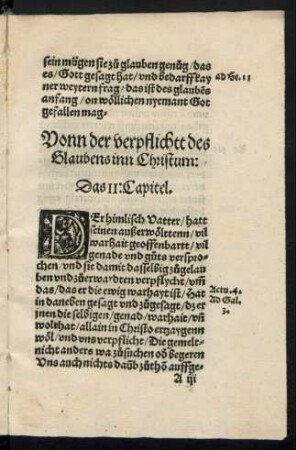 sein mügen sie zů glauben genůg / das
es / Gott gesagt hat / vnd bedarff kay
ad He. 11
ner weytern frag / das ist des glaubẽs
anfang / on wöllichen nyemant Got
gefallen mag.
Vonn der verpflichtt des
Glaubens inn Christum:
Das II: Capitel.
DEr himlisch Vatter / hatt
seinen außerwölttenn / vil
warhait geoffenbartt / vil
genade vnd gůts verspro
chen / vnd sie damit dasselbig zůgelau
ben vnd zůerwardten verpflycht / vm̃
das / das er die ewig warhayt ist / Hat
Actu. 4.
in daneben gesagt vnd zůgesagt / dz er
Ad Gal.
jnen die selbigen / genad / warhait / vm̃
3.
wolthat / allain in Christo erzaygenn
wöl / vnd vns verpflicht / Die gemelt-
nicht anders wa zůsuchen ob begeren
Vns auch nichts daũb zůthõ auffge-
A iij